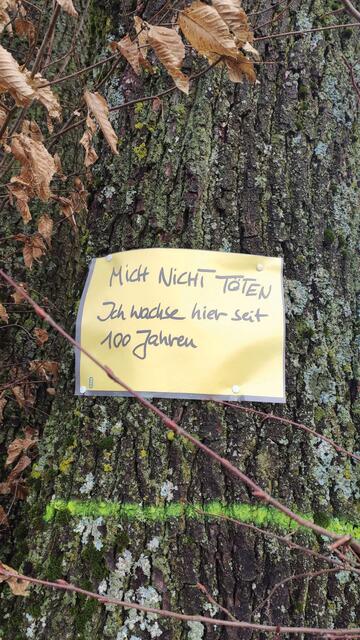 MICH NICHT TÖTEN
Ich wachse hier seit
100 Jahren